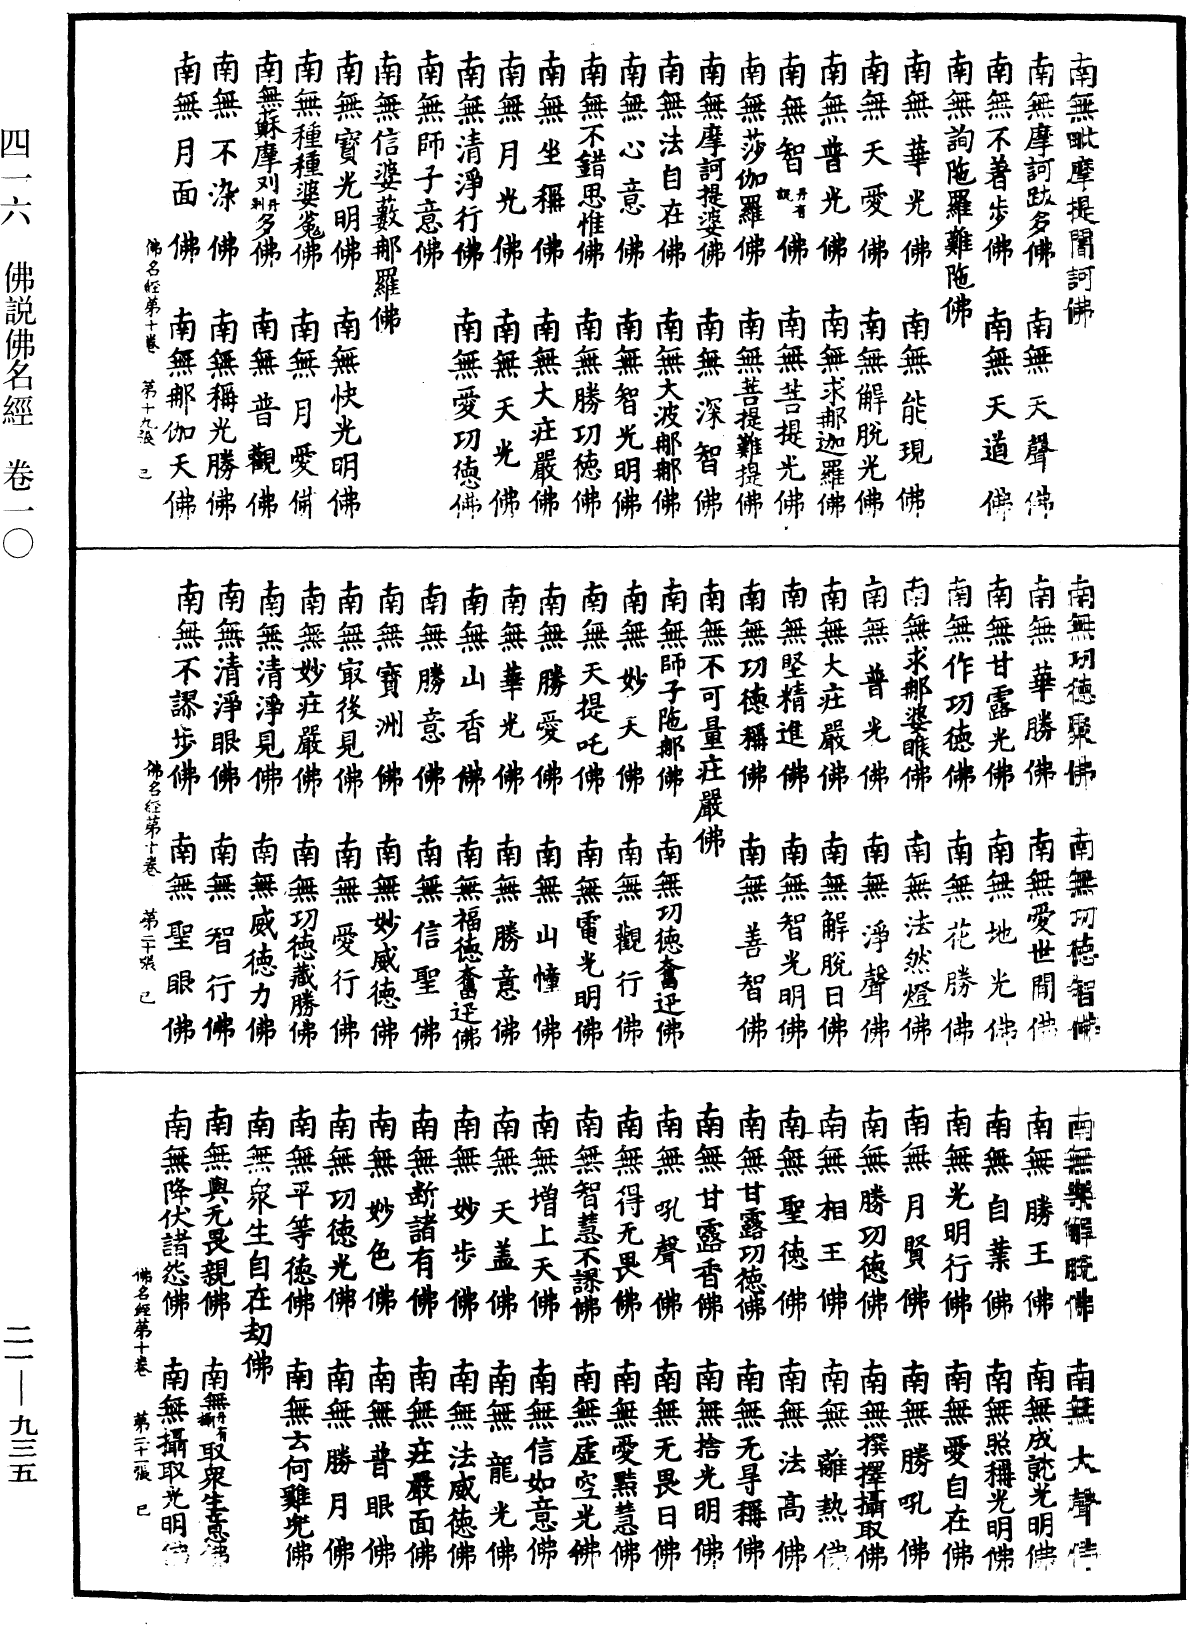 南無毗摩提闍訶佛
南無摩訶跋多佛　南無天聲佛
南無不著步佛　南無天道佛
南無詢陁羅難陁佛
南無華光佛　南無能現佛
南無天愛佛　南無解脫光佛
南無普光佛　南無求那迦羅佛
南無智丹有說佛　南無菩提光佛
南無莎伽羅佛　南無菩提難提佛
南無摩訶提婆佛　南無深智佛
南無法自在佛　南無大波那那佛
南無心意佛　南無智光明佛
南無不錯思惟佛　南無勝功徳佛
南無坐稱佛　南無大疘嚴佛
南無月光佛　南無天光佛
南無清淨行佛　南無愛功徳佛
南無師子意佛
南無信婆藪那羅佛
南無寶光明佛　南無快光明佛
南無種種婆㝹佛　南無月愛佛
南無蘇摩刈丹利多佛　南無普觀佛
南無不染佛　南無稱光勝佛
南無月面佛　南無那伽天佛
佛名經第十卷　第十九張　己
南無功徳聚佛　南無功徳智佛
南無華勝佛　南無愛世間佛
南無甘露光佛　南無地光佛
南無作功徳佛　南無花勝佛
南無求那婆睺佛　南無法然燈佛
南無普光佛　南無淨聲佛
南無大疘嚴佛　南無解脫日佛
南無堅精進佛　南無智光明佛
南無功徳稱佛　南無善智佛
南無不可量疘嚴佛
南無師子陁那佛　南無功徳奮迅佛
南無妙天佛　南無觀行佛
南無天提吒佛　南無電光明佛
南無勝愛佛　南無山幢佛
南無華光佛　南無勝意佛
南無山香佛　南無福徳奮迅佛
南無勝意佛　南無信聖佛
南無寶洲佛　南無妙威徳佛
南無㝡後見佛　南無愛行佛
南無妙疘嚴佛　南無功徳藏勝佛
南無清淨見佛　南無威徳力佛
南無清淨眼佛　南無智行佛
南無不謬步佛　南無聖眼佛
佛名經第十卷　第二十張　己
南無樂解脫佛　南無大聲佛
南無勝王佛　南無成就光明佛
南無自業佛　南無照稱光明佛
南無光明行佛　南無愛自在佛
南無月賢佛　南無勝吼佛
南無勝功徳佛　南無撰擇攝取佛
南無相王佛　南無離熱佛
南無聖徳佛　南無法高佛
南無甘露功徳佛　南無无㝵稱佛
南無甘露香佛　南無捨光明佛
南無吼聲佛　南無无畏日佛
南無得无畏佛　南無愛黠慧佛
南無智慧不謬佛　南無虛空光佛
南無增上天佛　南無信如意佛
南無天盖佛　南無龍光佛
南無妙步佛　南無法威徳佛
南無断諸有佛　南無疘嚴面佛
南無妙色佛　南無普眼佛
南無功徳光佛　南無勝月佛
南無平等徳佛　南無去何難兜佛
南無衆生自在劫佛
南無與无畏親佛　南無丹有斷取衆生意佛
南無降伏諸怨佛　南無攝取光明佛
佛名經第十卷　第二十一張　己
四一六　佛説佛名經　卷一〇
二一—九三五